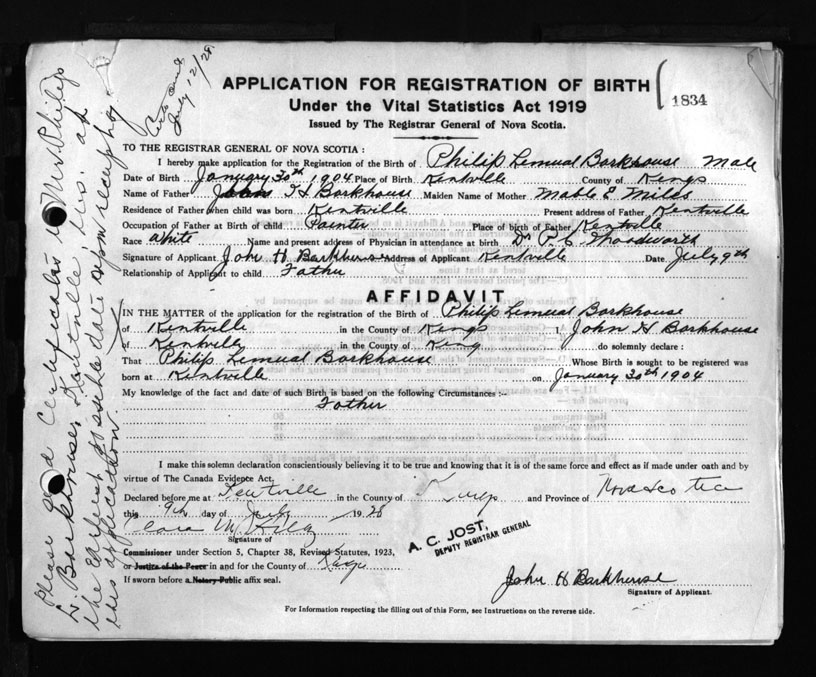 APPLICATION FOR REGISTRATION OF BIRTH
Under the Vital Statistics Act 1919
Issued by The Registrar General of Nova Scotia.
1834
July 12/28
TO THE REGISTRAR GENERAL OF NOVA SCOTIA :
I hereby make application for the Registration of the Birth of Philip Lemual Barkhouse Male
Date of Birth January 30th 1904 Place of Birth Kentville County of Kings
Name of Father John H Barkhouse Maiden Name of Mother Mable E Mills
Residence of Father when child was born Kentville Present address of Father Kentville
Occupation of Father at Birth of child Painter Place of birth of Father Kentville
Race White Name and present address of Physician in attendance at birth Dr P. C. Woodworth
Signature of Applicant John H Barkhouse Address of Applicant Kentville Date July 9th
Relationship of Applicant to child Father
AFFIDAVIT
IN THE MATTER of the application for the registration of the Birth of Philip Lemual Barkhouse
of Kentville in the County of Kings I, John H Barkhouse
of Kentville in the County of King do solemnly declare :
That Philip Lemual Barkhouse Whose Birth is sought to be registered was
born at Kentville on January 30th 1904
My knowledge of the fact and date of such Birth is based on the following Circumstances :--
Father
I make this solemn declaration conscientiously believing it to be true and knowing that it is of the same force and effect as if made under oath and by
virtue of The Canada Evidence Act.
Declared before me at Kentville in the County of Kings and Province of Nova Scotia
this 9th day of July 1928
Signature of
Commissioner under Section 5, Chapter 38, Revised Statutes, 1923,
or Justice of the Peace in and for the County of Kings
If sworn before a Notary Public affix seal.
A. C. JOST,
DEPUTY REGISTRAR GENERAL
John H Barkhouse
Signature of Applicant.
For Information respecting the filling out of this Form, see Instructions on the reverse side.
Please send Certificate to Mr. Philip
L. Barkhouse, Kentville, N.S. at
the earliest possible date upon receipt of
this application